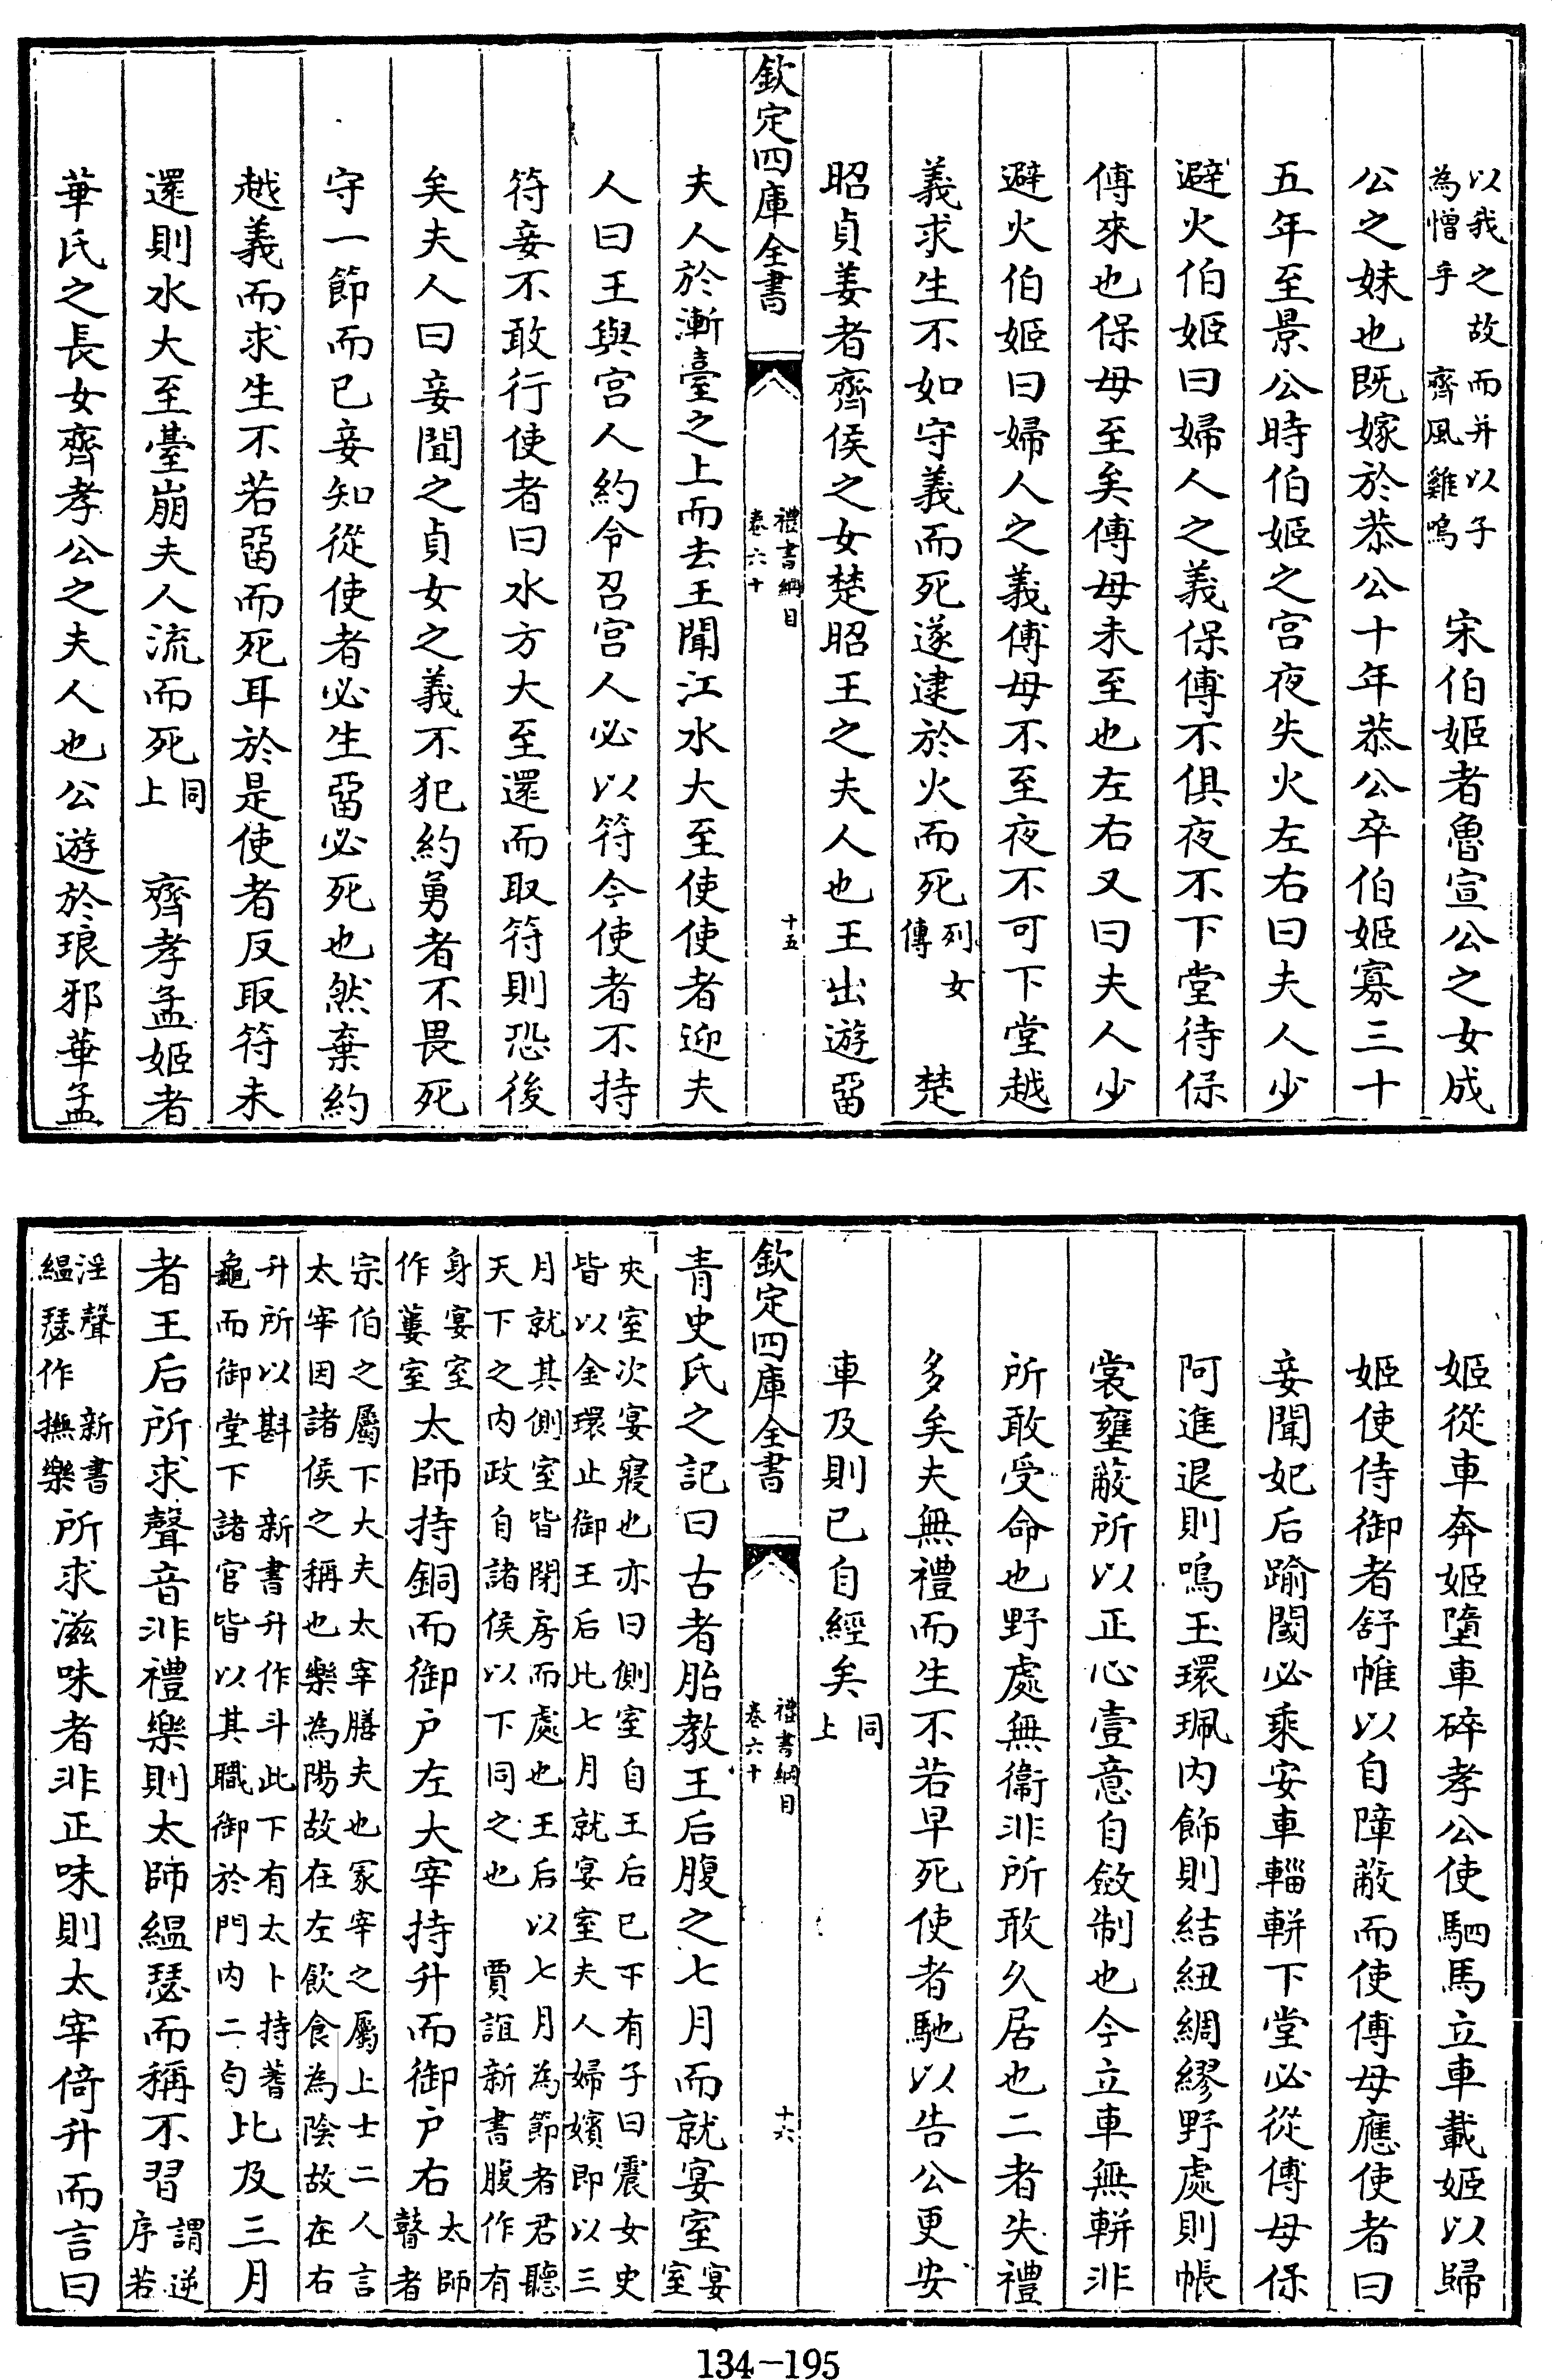 以我之故而并以子為憎乎　齊風雞鳴　宋伯姬者魯宣公之女成
公之妹也既嫁於恭公十年恭公卒伯姬寡三十
五年至景公時伯姬之宮夜失火左右曰夫人少
避火伯姬曰婦人之義保傅不俱夜不下堂待保
傅來也保母至矣傅母未至也左右又曰夫人少
避火伯姬曰婦人之義傅母不至夜不可下堂越
義求生不如守義而死遂逮於火而死列女傳　楚
昭貞姜者齊侯之女楚昭王之夫人也王出遊留
欽定四庫全書　禮書綱目卷六十　十五
夫人於漸臺之上而去王聞江水大至使使者迎夫
人曰王與宮人約令召宮人必以符今使者不持
符妾不敢行使者曰水方大至還而取符則恐後
矣夫人曰妾聞之貞女之義不犯約勇者不畏死
守一節而已妾知從使者必生留必死也然棄約
越義而求生不若留而死耳於是使者反取符未
還則水大至臺崩夫人流而死同上　齊孝孟姬者
華氏之長女齊孝公之夫人也公遊於琅邪華孟
姬從車奔姬墮車碎孝公使駟馬立車載姬以歸
姬使侍御者舒帷以自障蔽而使傅母應使者曰
妾聞妃后踰閾必乘安車輜軿下堂必從傅母保
阿進退則鳴玉環珮內飾則結紐綢繆野處則帳
裳壅蔽所以正心壹意自斂制也今立車無軿非
所敢受命也野處無衞非所敢久居也二者失禮
多矣夫無禮而生不若早死使者馳以告公更安
車及則已自經矣同上
欽定四庫全書　禮書綱目卷六十　十六
青史氏之記曰古者胎教王后腹之七月而就宴室宴室
夾室次宴寢也亦曰側室自王后已下有子曰震女史
皆以金環止御王后比七月就宴室夫人婦嬪即以三
月就其側室皆閉房而處也王后以七月為節者君聽
天下之內政自諸侯以下同之也　賈誼新書腹作有
身宴室作蔞室太師持銅而御户左大宰持升而御户右太師瞽者
宗伯之屬下大夫太宰膳夫也冢宰之屬上士二人言
太宰因諸侯之稱也樂為陽故在左飲食為陰故在右
升所以斟　新書升作斗此下有太卜持蓍
龜而御堂下諸官皆以其職御於門內二句比及三月
者王后所求聲音非禮樂則太師緼瑟而稱不習謂逆序若
淫聲　新書緼瑟作撫樂所求滋味者非正味則太宰倚升而言曰
134-195